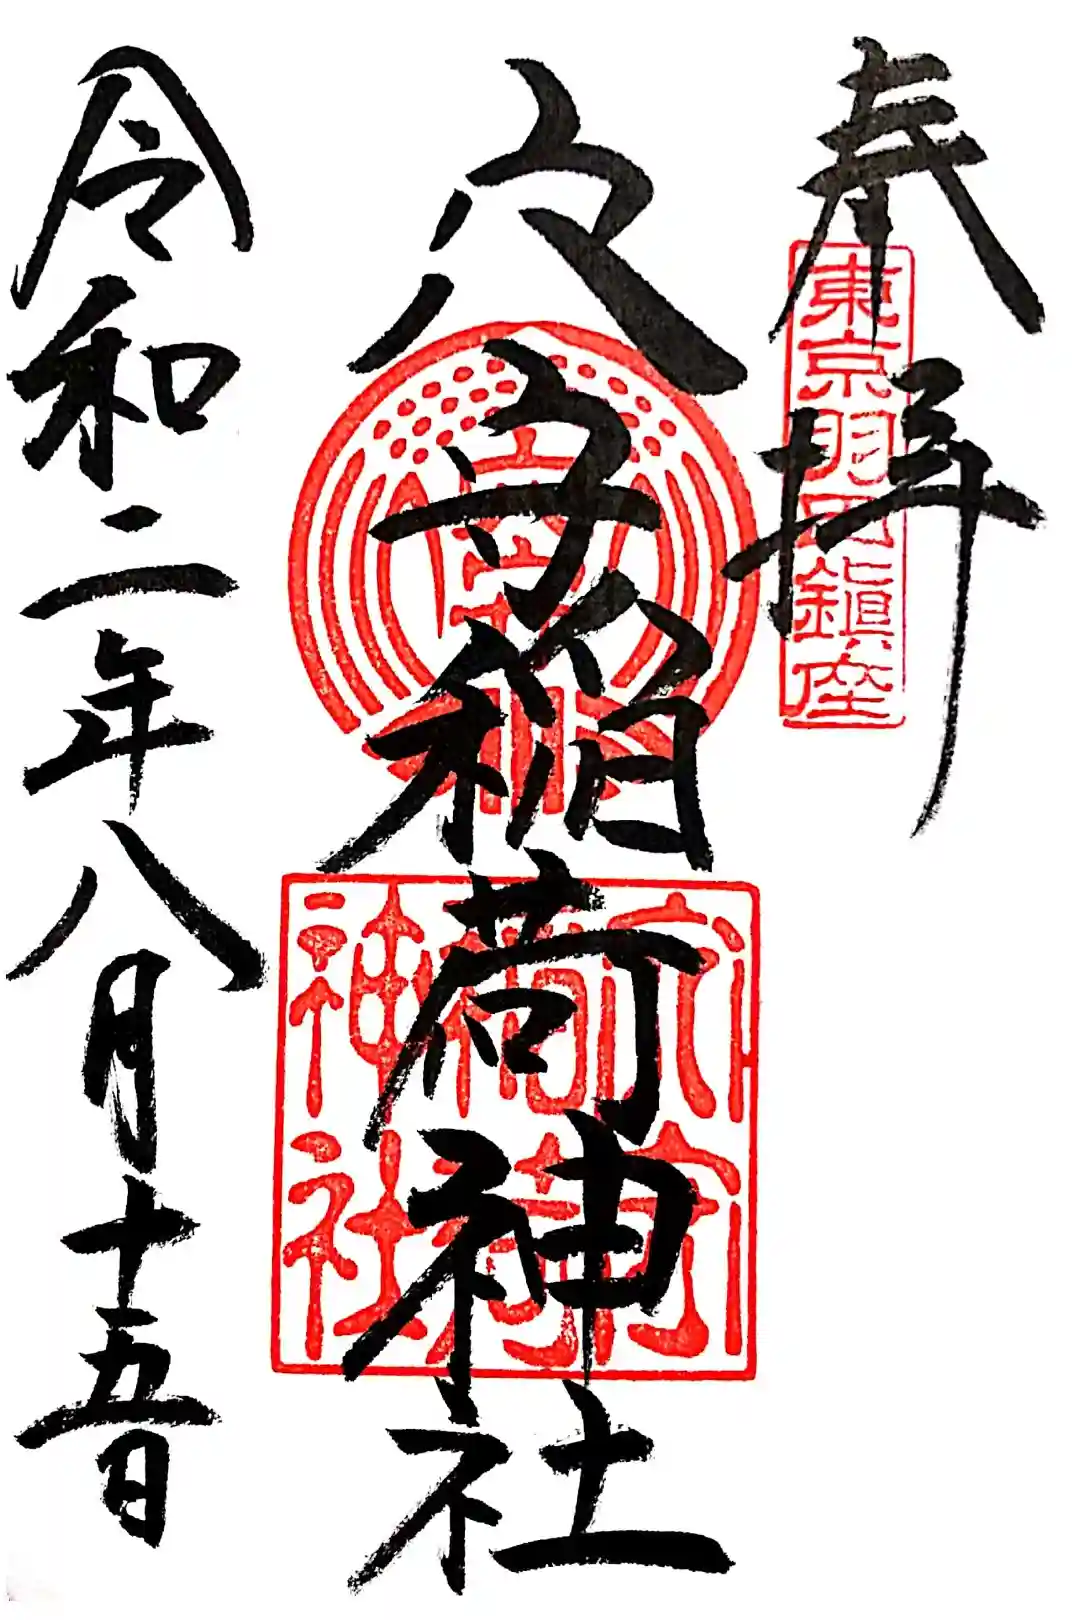 奉拝
東京羽田鎮座
穴守稲荷神社
穴守稲荷神社
令和二年八月十五日